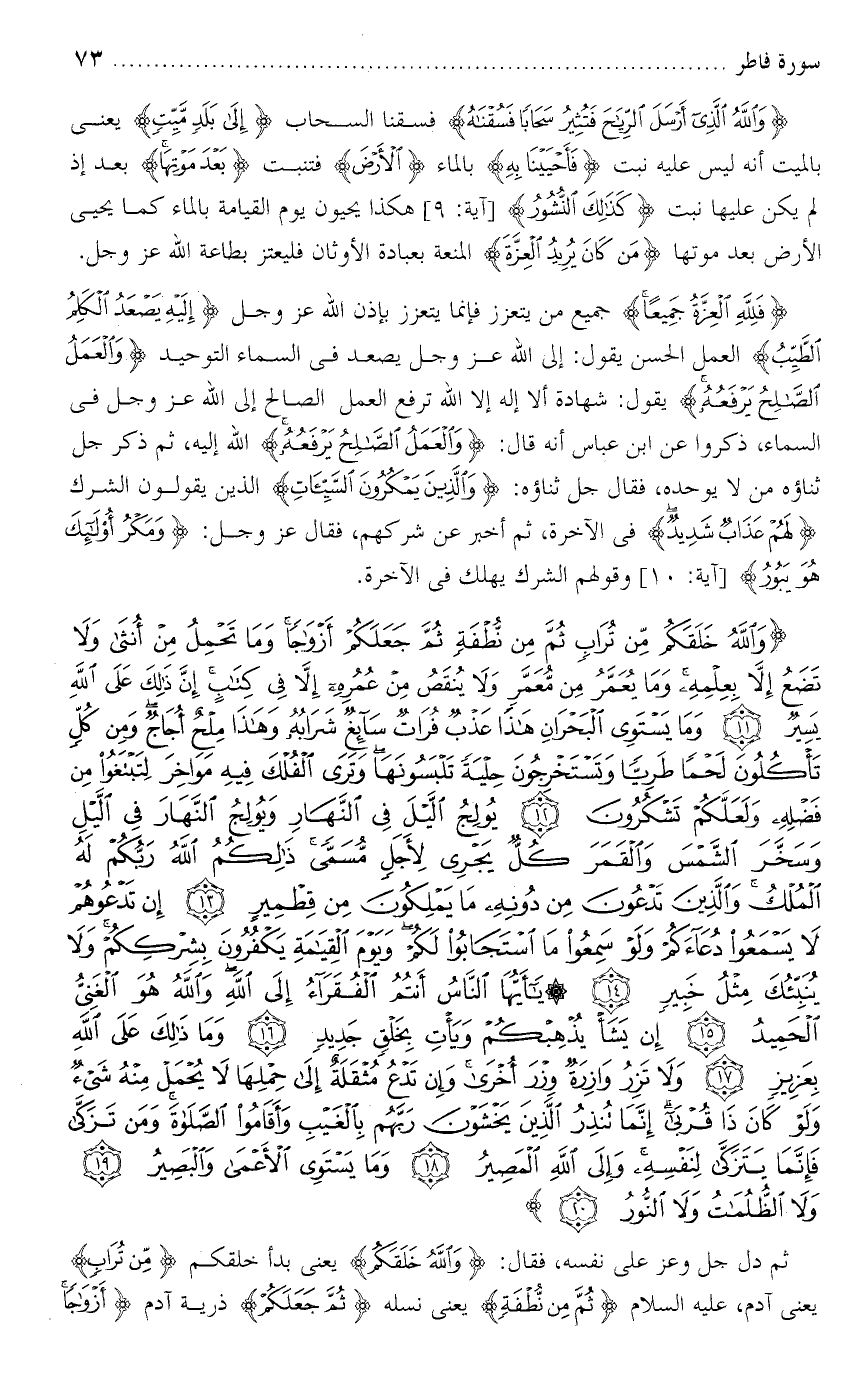 سورة فاطر ........................................................................ ٧٣
﴿وَٱللَّهُ ٱلَّذِىٓ أَرْسَلَ ٱلرِّيَٰحَ فَتُثِيرُ سَحَابًا فَسُقْنَٰهُ﴾ فسقنا السحاب ﴿إِلَىٰ بَلَدٍ مَّيِّتٍ﴾ يعنى
بالميت أنه ليس عليه نبت ﴿فَأَحْيَيْنَا بِهِ﴾ بالماء ﴿ٱلْأَرْضَ﴾ فتنبت ﴿بَعْدَ مَوْتِهَاۚ﴾ بعد إذ
لم يكن عليها نبت ﴿كَذَٰلِكَ ٱلنُّشُورُ﴾ [آية: ٩] هكذا يحيون يوم القيامة بالماء كما يحيى
الأرض بعد موتها ﴿مَن كَانَ يُرِيدُ ٱلْعِزَّةَ﴾ المنعة بعبادة الأوثان فليعتز بطاعة الله عز وجل.
﴿فَلِلَّهِ ٱلْعِزَّةُ جَمِيعًاۚ﴾ جميع من يتعزز فإنما يتعزز بإذن الله عز وجل ﴿إِلَيْهِ يَصْعَدُ ٱلْكَلِمُ
ٱلطَّيِّبُ﴾ العمل الحسن يقول: إلى الله عز وجل يصعد فى السماء التوحيد ﴿وَٱلْعَمَلُ
ٱلصَّٰلِحُ يَرْفَعُهُۥۚ﴾ يقول: شهادة ألا إله إلا الله ترفع العمل الصالح إلى الله عز وجل فى
السماء، ذكروا عن ابن عباس أنه قال: ﴿وَٱلْعَمَلُ ٱلصَّٰلِحُ يَرْفَعُهُۥۚ﴾ الله إليه، ثم ذكر جل
ثناؤه من لا يوحده، فقال جل ثناؤه: ﴿وَٱلَّذِينَ يَمْكُرُونَ ٱلسَّيِّـَٔاتِ﴾ الذين يقولون الشرك
﴿لَهُمْ عَذَابٌ شَدِيدٌۖ﴾ فى الآخرة، ثم أخبر عن شركهم، فقال عز وجل: ﴿وَمَكْرُ أُو۟لَٰٓئِكَ
هُوَ يَبُورُ﴾ [آية: ١٠] وقولهم الشرك يهلك فى الآخرة.
﴿وَٱللَّهُ خَلَقَكُم مِّن تُرَابٍ ثُمَّ مِن نُّطْفَةٍ ثُمَّ جَعَلَكُمْ أَزْوَٰجًاۚ وَمَا تَحْمِلُ مِنْ أُنثَىٰ وَلَا
تَضَعُ إِلَّا بِعِلْمِهِۦۚ وَمَا يُعَمَّرُ مِن مُّعَمَّرٍ وَلَا يُنقَصُ مِنْ عُمُرِهِۦٓ إِلَّا فِى كِتَٰبٍۚ إِنَّ ذَٰلِكَ عَلَى ٱللَّهِ
يَسِيرٌ ١١ وَمَا يَسْتَوِى ٱلْبَحْرَانِ هَٰذَا عَذْبٌ فُرَاتٌ سَآئِغٌ شَرَابُهُۥ وَهَٰذَا مِلْحٌ أُجَاجٌۖ وَمِن كُلٍّ
تَأْكُلُونَ لَحْمًا طَرِيًّا وَتَسْتَخْرِجُونَ حِلْيَةً تَلْبَسُونَهَاۖ وَتَرَى ٱلْفُلْكَ فِيهِ مَوَاخِرَ لِتَبْتَغُوا۟ مِن
فَضْلِهِۦ وَلَعَلَّكُمْ تَشْكُرُونَ ١٢ يُولِجُ ٱلَّيْلَ فِى ٱلنَّهَارِ وَيُولِجُ ٱلنَّهَارَ فِى ٱلَّيْلِ
وَسَخَّرَ ٱلشَّمْسَ وَٱلْقَمَرَ كُلٌّ يَجْرِى لِأَجَلٍ مُّسَمًّىۚ ذَٰلِكُمُ ٱللَّهُ رَبُّكُمْ لَهُ
ٱلْمُلْكُۚ وَٱلَّذِينَ تَدْعُونَ مِن دُونِهِۦ مَا يَمْلِكُونَ مِن قِطْمِيرٍ ١٣ إِن تَدْعُوهُمْ
لَا يَسْمَعُوا۟ دُعَآءَكُمْ وَلَوْ سَمِعُوا۟ مَا ٱسْتَجَابُوا۟ لَكُمْۖ وَيَوْمَ ٱلْقِيَٰمَةِ يَكْفُرُونَ بِشِرْكِكُمْۚ وَلَا
يُنَبِّئُكَ مِثْلُ خَبِيرٍ ١٤ ۞ يَٰٓأَيُّهَا ٱلنَّاسُ أَنتُمُ ٱلْفُقَرَآءُ إِلَى ٱللَّهِۖ وَٱللَّهُ هُوَ ٱلْغَنِىُّ
ٱلْحَمِيدُ ١٥ إِن يَشَأْ يُذْهِبْكُمْ وَيَأْتِ بِخَلْقٍ جَدِيدٍ ١٦ وَمَا ذَٰلِكَ عَلَى ٱللَّهِ
بِعَزِيزٍ ١٧ وَلَا تَزِرُ وَازِرَةٌ وِزْرَ أُخْرَىٰۚ وَإِن تَدْعُ مُثْقَلَةٌ إِلَىٰ حِمْلِهَا لَا يُحْمَلْ مِنْهُ شَىْءٌ
وَلَوْ كَانَ ذَا قُرْبَىٰٓۗ إِنَّمَا تُنذِرُ ٱلَّذِينَ يَخْشَوْنَ رَبَّهُم بِٱلْغَيْبِ وَأَقَامُوا۟ ٱلصَّلَوٰةَۚ وَمَن تَزَكَّىٰ
فَإِنَّمَا يَتَزَكَّىٰ لِنَفْسِهِۦۚ وَإِلَى ٱللَّهِ ٱلْمَصِيرُ ١٨ وَمَا يَسْتَوِى ٱلْأَعْمَىٰ وَٱلْبَصِيرُ ١٩
وَلَا ٱلظُّلُمَٰتُ وَلَا ٱلنُّورُ ٢٠ ﴾
ثم دل جل وعز على نفسه، فقال: ﴿وَٱللَّهُ خَلَقَكُم﴾ يعنى بدأ خلقكم ﴿مِّن تُرَابٍ﴾
يعنى آدم، عليه السلام ﴿ثُمَّ مِن نُّطْفَةٍ﴾ يعنى نسله ﴿ثُمَّ جَعَلَكُمْ﴾ ذرية آدم ﴿أَزْوَٰجًاۚ